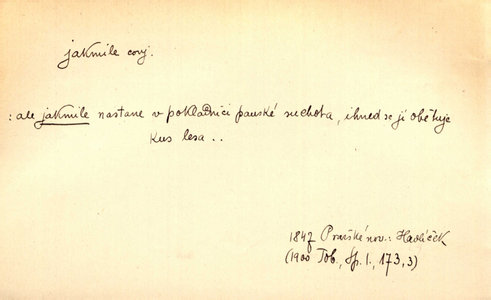 jakmile conj.
: ale jakmile nastane v pokladnici panské suchota, ihned se jí obětuje
kus lesa ..
1847 Pražské nov.: Havlíček
(1900 Tob., Sp. I., 173, 3)